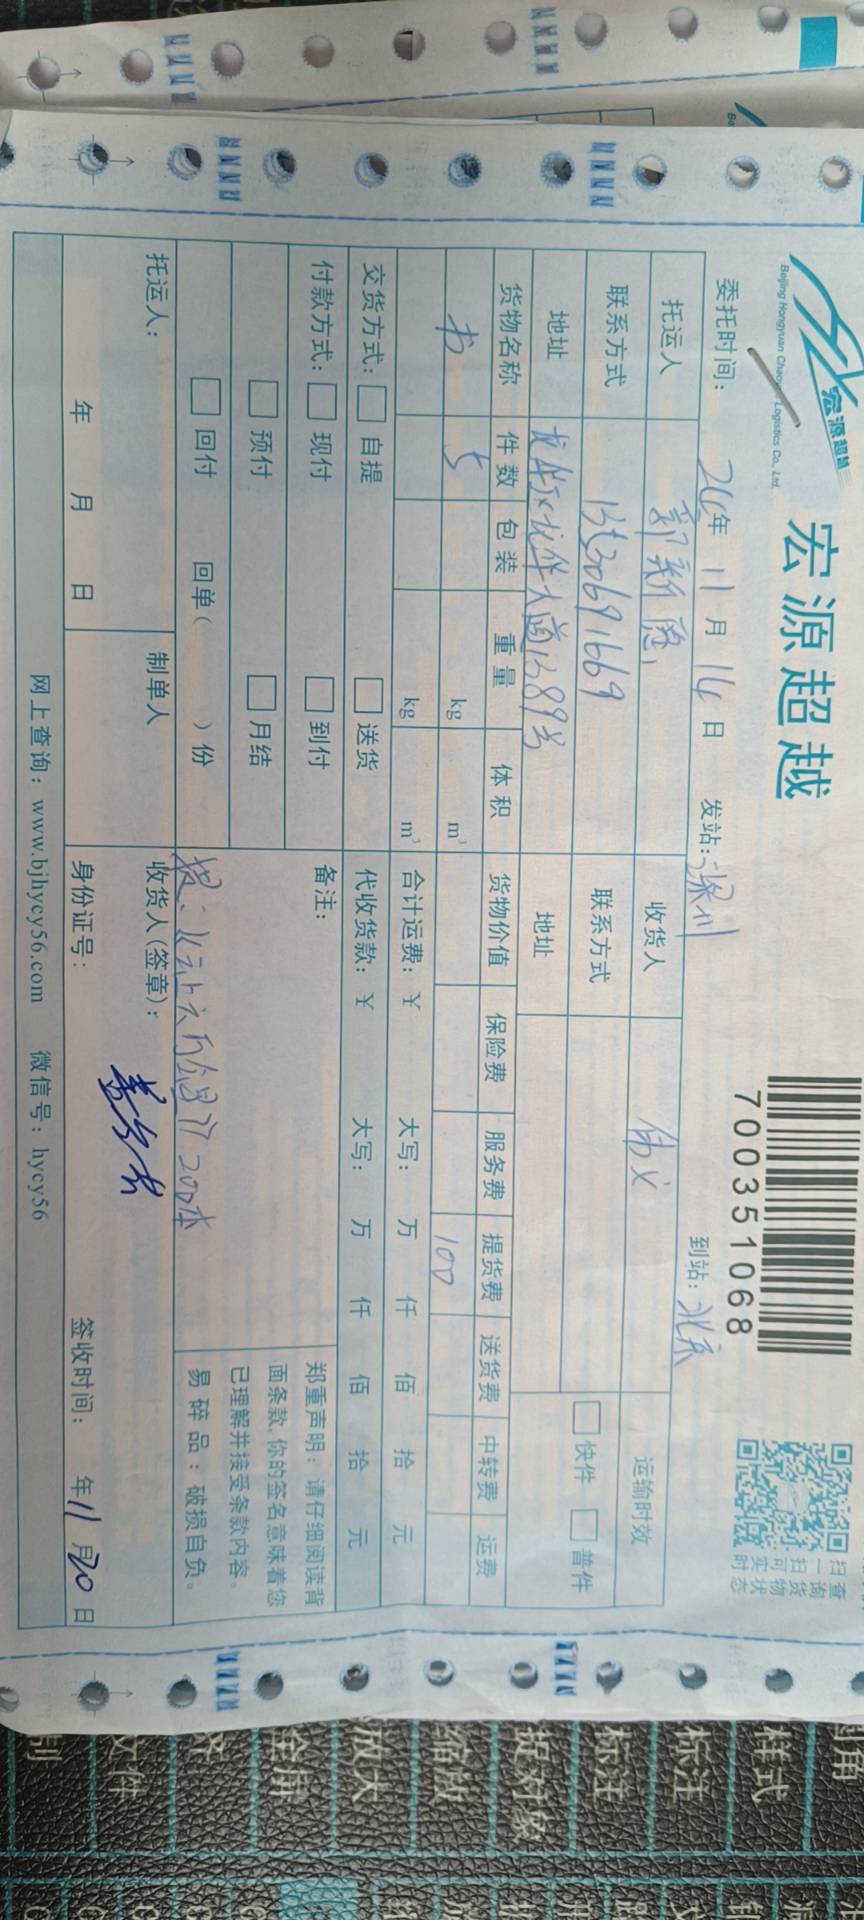 宏源超越
宏源超越
Beijing Hongyuan Chao Logistics Co., Ltd.
7003510068
扫一扫可实时
查询货物状态
委托时间: 24年 11月 14日 发站: 深圳 到站: 北京
托运人 郭新 收货人 运输时效
联系方式 13530691669 联系方式 快件 普件
地址 龙华区龙华大道1389号 地址
货物名称 件数 包装 重量 体积 货物价值 保险费 服务费 提货费 送货费 中转费 运费
书 5 kg m³ 100
kg m³ 合计运费: ¥ 大写: 万 仟 佰 拾 元
交货方式: 自提 送货 代收货款: ¥ 大写: 万 仟 佰 拾 元
付款方式: 现付 到付 备注:
预付 月结
回付 回单( )份
200本
郑重声明: 请仔细阅读背
面条款, 你的签名意味着您
已理解并接受条款内容。
易碎品: 破损自负。
托运人: 制单人 收货人(签章):
年 月 日 身份证号: 签收时间: 年11月20日
网上查询: www.bjhycy56.com 微信号: hycy56
样式
标注
标注
捉对象
缩放
放大
文件